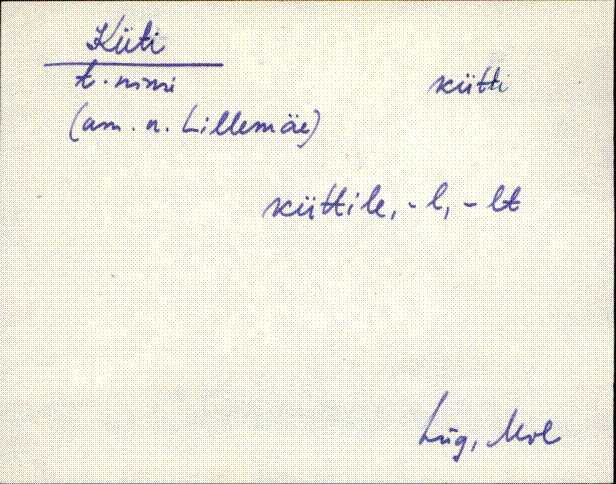 Küti
t. nimi kütti
(am. n. Lillemäe)
küttile, -l, -lt
Lüg, Mol